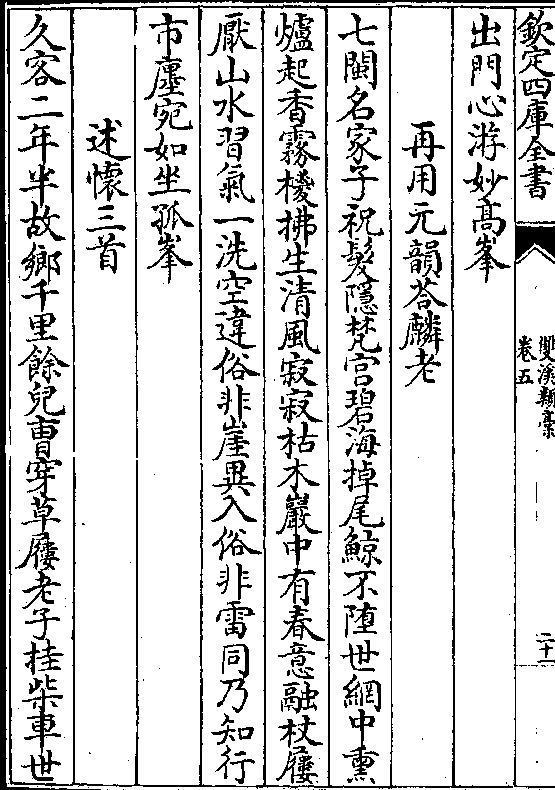 欽定四庫全書
雙溪類稾
卷五
二十一
出門心游妙髙峯
再用元韻荅麟老
七閩名家子祝髮隱梵宫碧海掉尾鯨不墮世網中熏
爐起香霧椶拂生清風寂寂枯木巖中有春意融杖屨
厭山水習氣一洗空違俗非崖異入俗非雷同乃知行
市廛宛如坐孤峯
述懐三首
久客二年半故鄉千里餘兒曹穿草屨老子挂柴車世